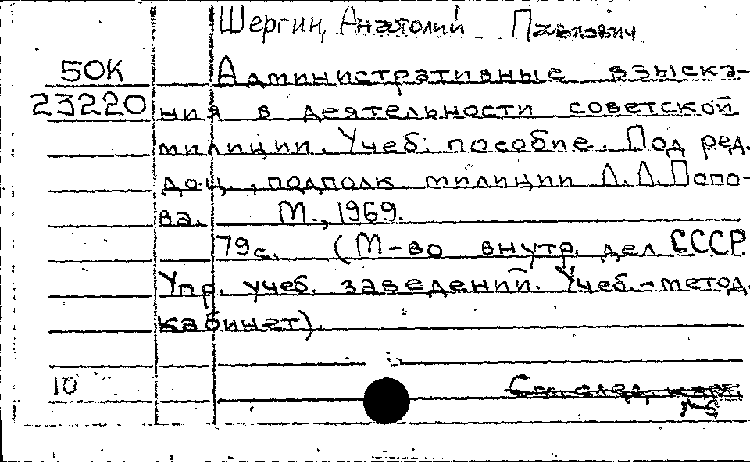 Шергин, Анатолий Павлович
50К Административные взыска-
23220 ния в деятельности советской
милиции. Учеб. пособие. Под ред.
доц., подполк милиции Л.Л.Попо-
ва. М., 1969.
79с. (М-во внутр. дел СССР
Упр. учеб. заведений. Учеб.-метод.
кабинет).
10 См. след. карт.